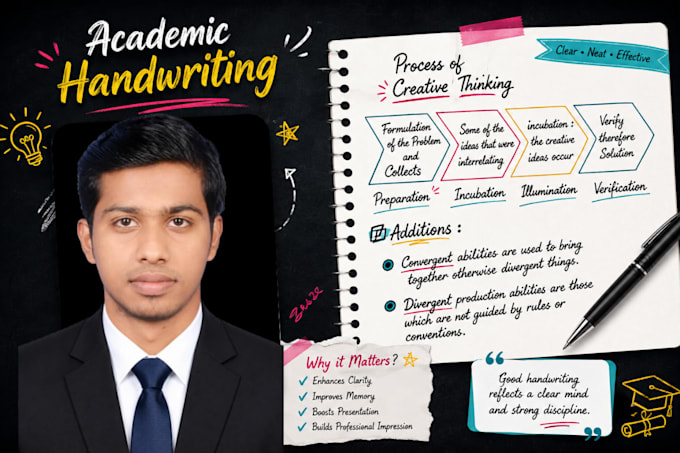 Academic
Handwriting
Clear • Neat • Effective
Process of
Creative Thinking
Formulation
of the Problem
and
Collects
Some of the
ideas that were
interrelating
incubation :
the creative
ideas occur
Verify
therefore
Solution
Preparation
Incubation
Illumination
Verification
Additions :
Convergent abilities are used to bring
together otherwise divergent things.
Divergent production abilities are those
which are not guided by rules or
conventions.
Why it Matters?
Enhances Clarity
Improves Memory
Boosts Presentation
Builds Professional Impression
Good handwriting
reflects a clear mind
and strong discipline.